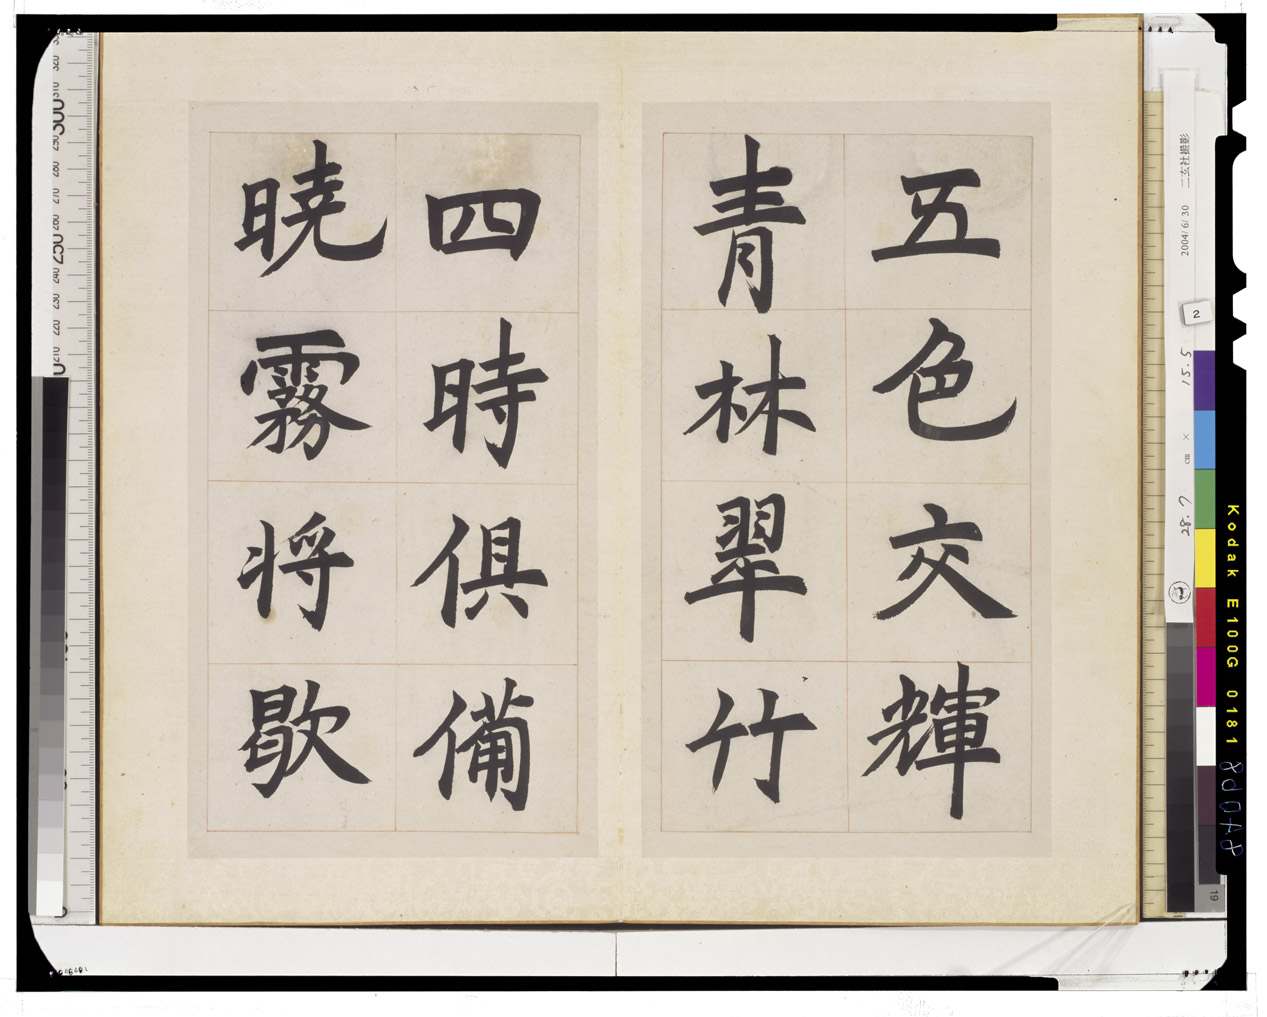 五色交輝
青林翠竹
四時俱備
曉霧将歇
二玄社撮影
2004/6/30
2
15.5
×
cm
28.7
Kodak E100G 0181
19